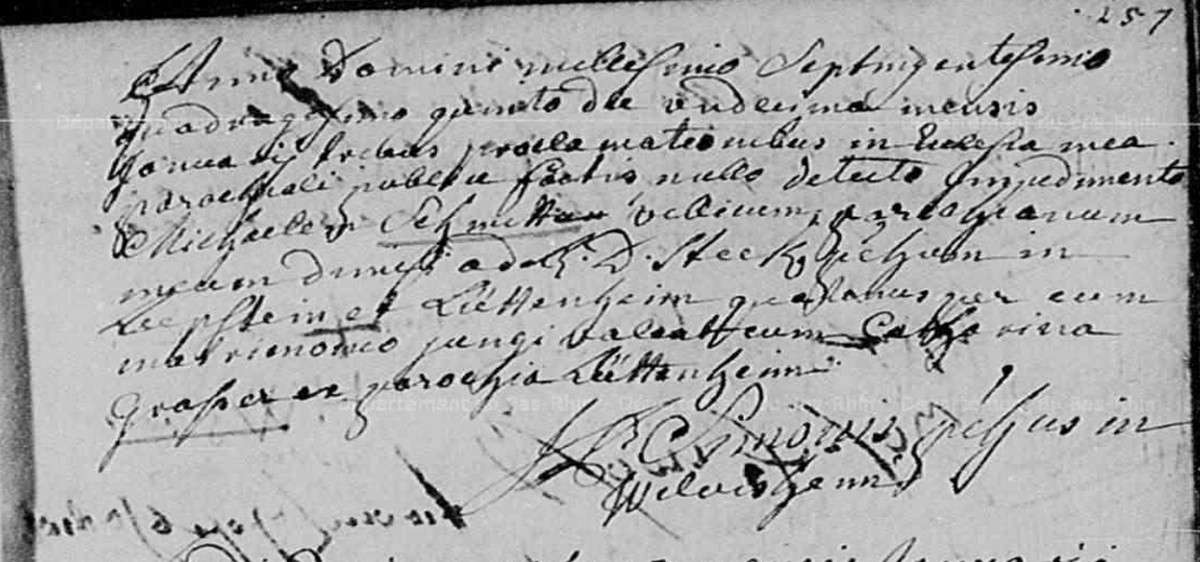 257
Anno Domini millesimo Septingentesimo
quadragesimo quinto die undecima mensis
Januarij tribus proclamationibus in Eclesia mea
parochiali publice factis nullo detecto impedimento
Michaelem Schmitt parochianum
meum dimisi ad R. D. Steck in
Leepstein et Lüttenheim quatenus per eum
matrimonio jungi valeat cum Catharina
Grasser ex parochia Lüttenheim
Simonis in
Wilvisheim